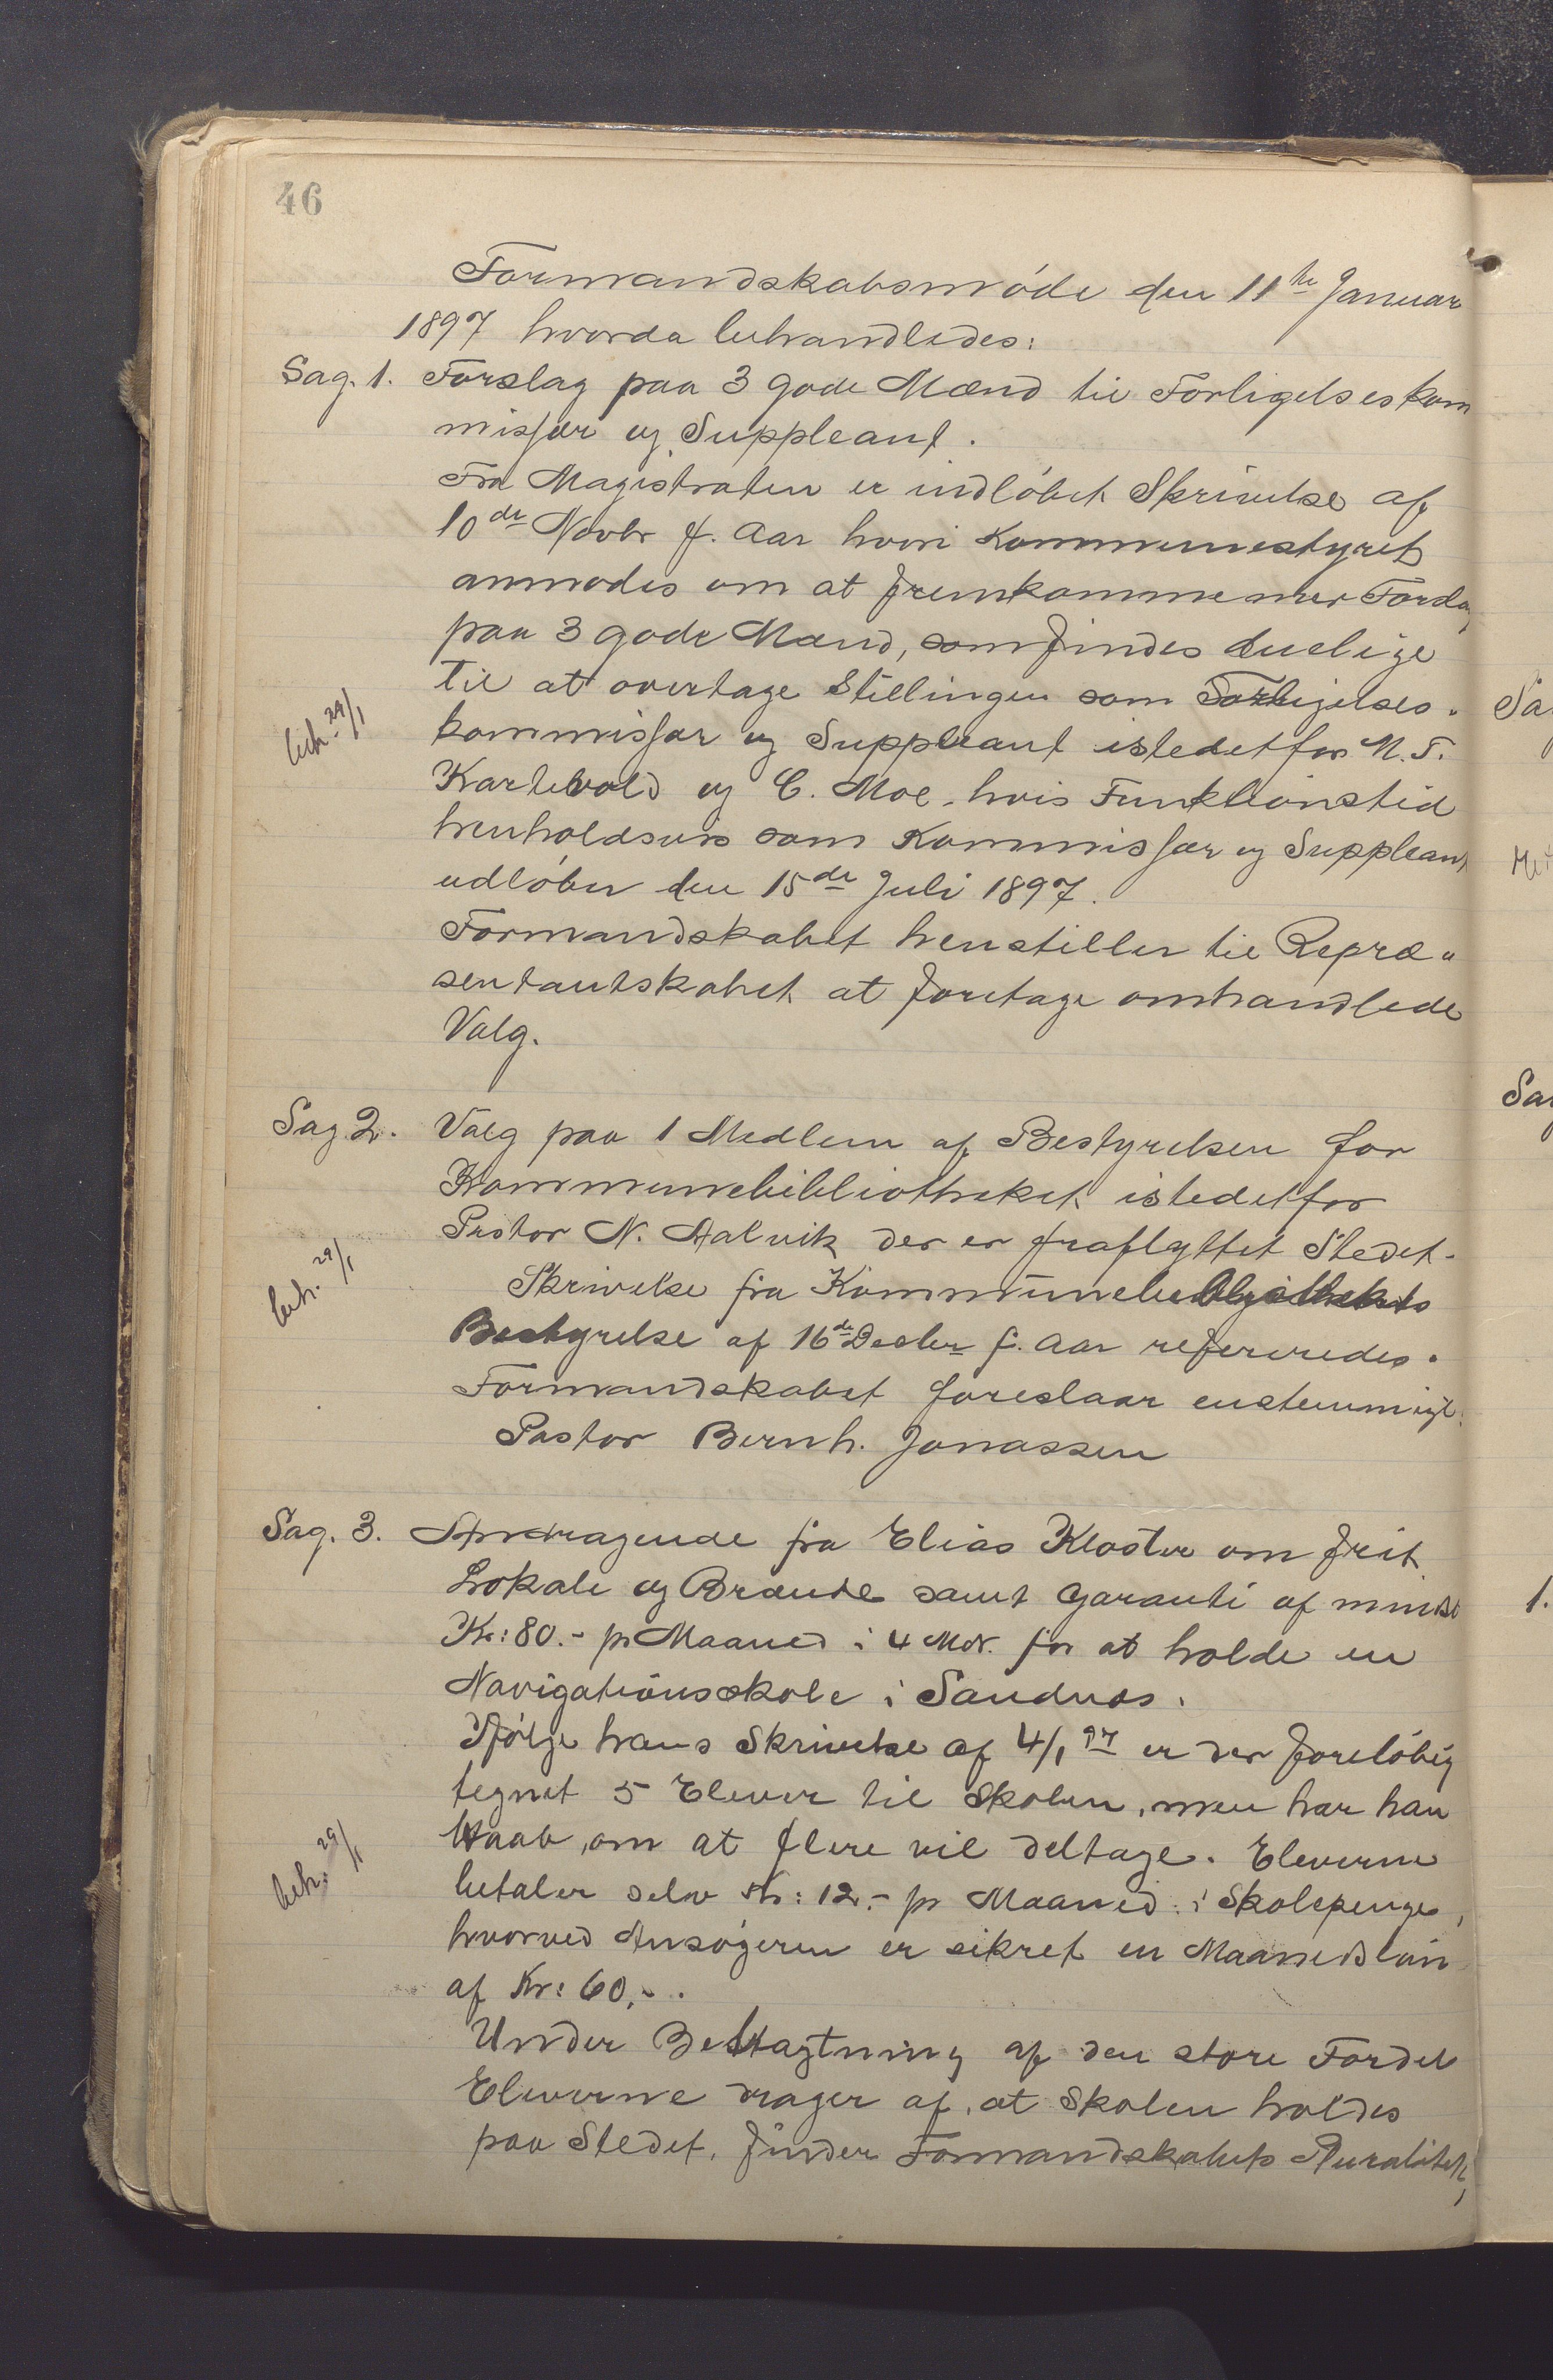 46
Formandskabsmøde den 11te Januar
1897 hvorda behandledes:
Sag. 1. Forslag paa 3 gode Mænd til Forligelseskom
misjær og Suppleant.
Fra Magistraten er indløbet Skrivelse af
10de Novbr f. Aar hvori Kommunestyret
anmodes om at fremkomme mer Forslag
paa 3 gode Mænd, som findes duelige
til at overtage Stillingen som Forligelses-
beh. 29/1
kommisjær og Suppleant istedetfor M. T.
Kartevold og C. Moe, hvis Funktionstid
henholdsvis som Kommisjær og Suppleant
udløber den 15de Juli 1897.
Formandskabet henstiller til Repræ-
sentantskabet at foretage omhandlede
Valg.
Sag 2. Valg paa 1 Medlem af Bestyrelsen for
Kommunebibliotheket istedetfor
Prstor N. Aalvik der er fraflyttet Stedet.
beh. 29/1
Skrivelse fra Kommunebibliothekets
Bestyrelse af 16de Decbr f. Aar refereredes.
Formandskabet foreslaar enstemmigt:
Pastor Bernh. Jonassen
Sag. 3. Andragende fra Elias Kloster om frit
Lokale og Brænde samt Garanti af mindst
Kr: 80.- pr Maaned i 4 Mdr. for at holde en
Navigationsskole i Sandnæs.
Ifølge hans Skrivelse af 4/1 97 er der foreløbig
tegnet 5 Elever til Skolen, men har han
beh. 29/1
Haab, om at flere vil deltage. Eleverne
betaler selv Kr: 12.- pr Maaned i Skolepenge,
hvorved Ansøgeren er sikret en Maanedsløn
af Kr: 60,-.
Under Betragtning af den store Fordel
Eleverne drager af, at Skolen holdes
paa Stedet, finder Formandskabets Pluralitet,